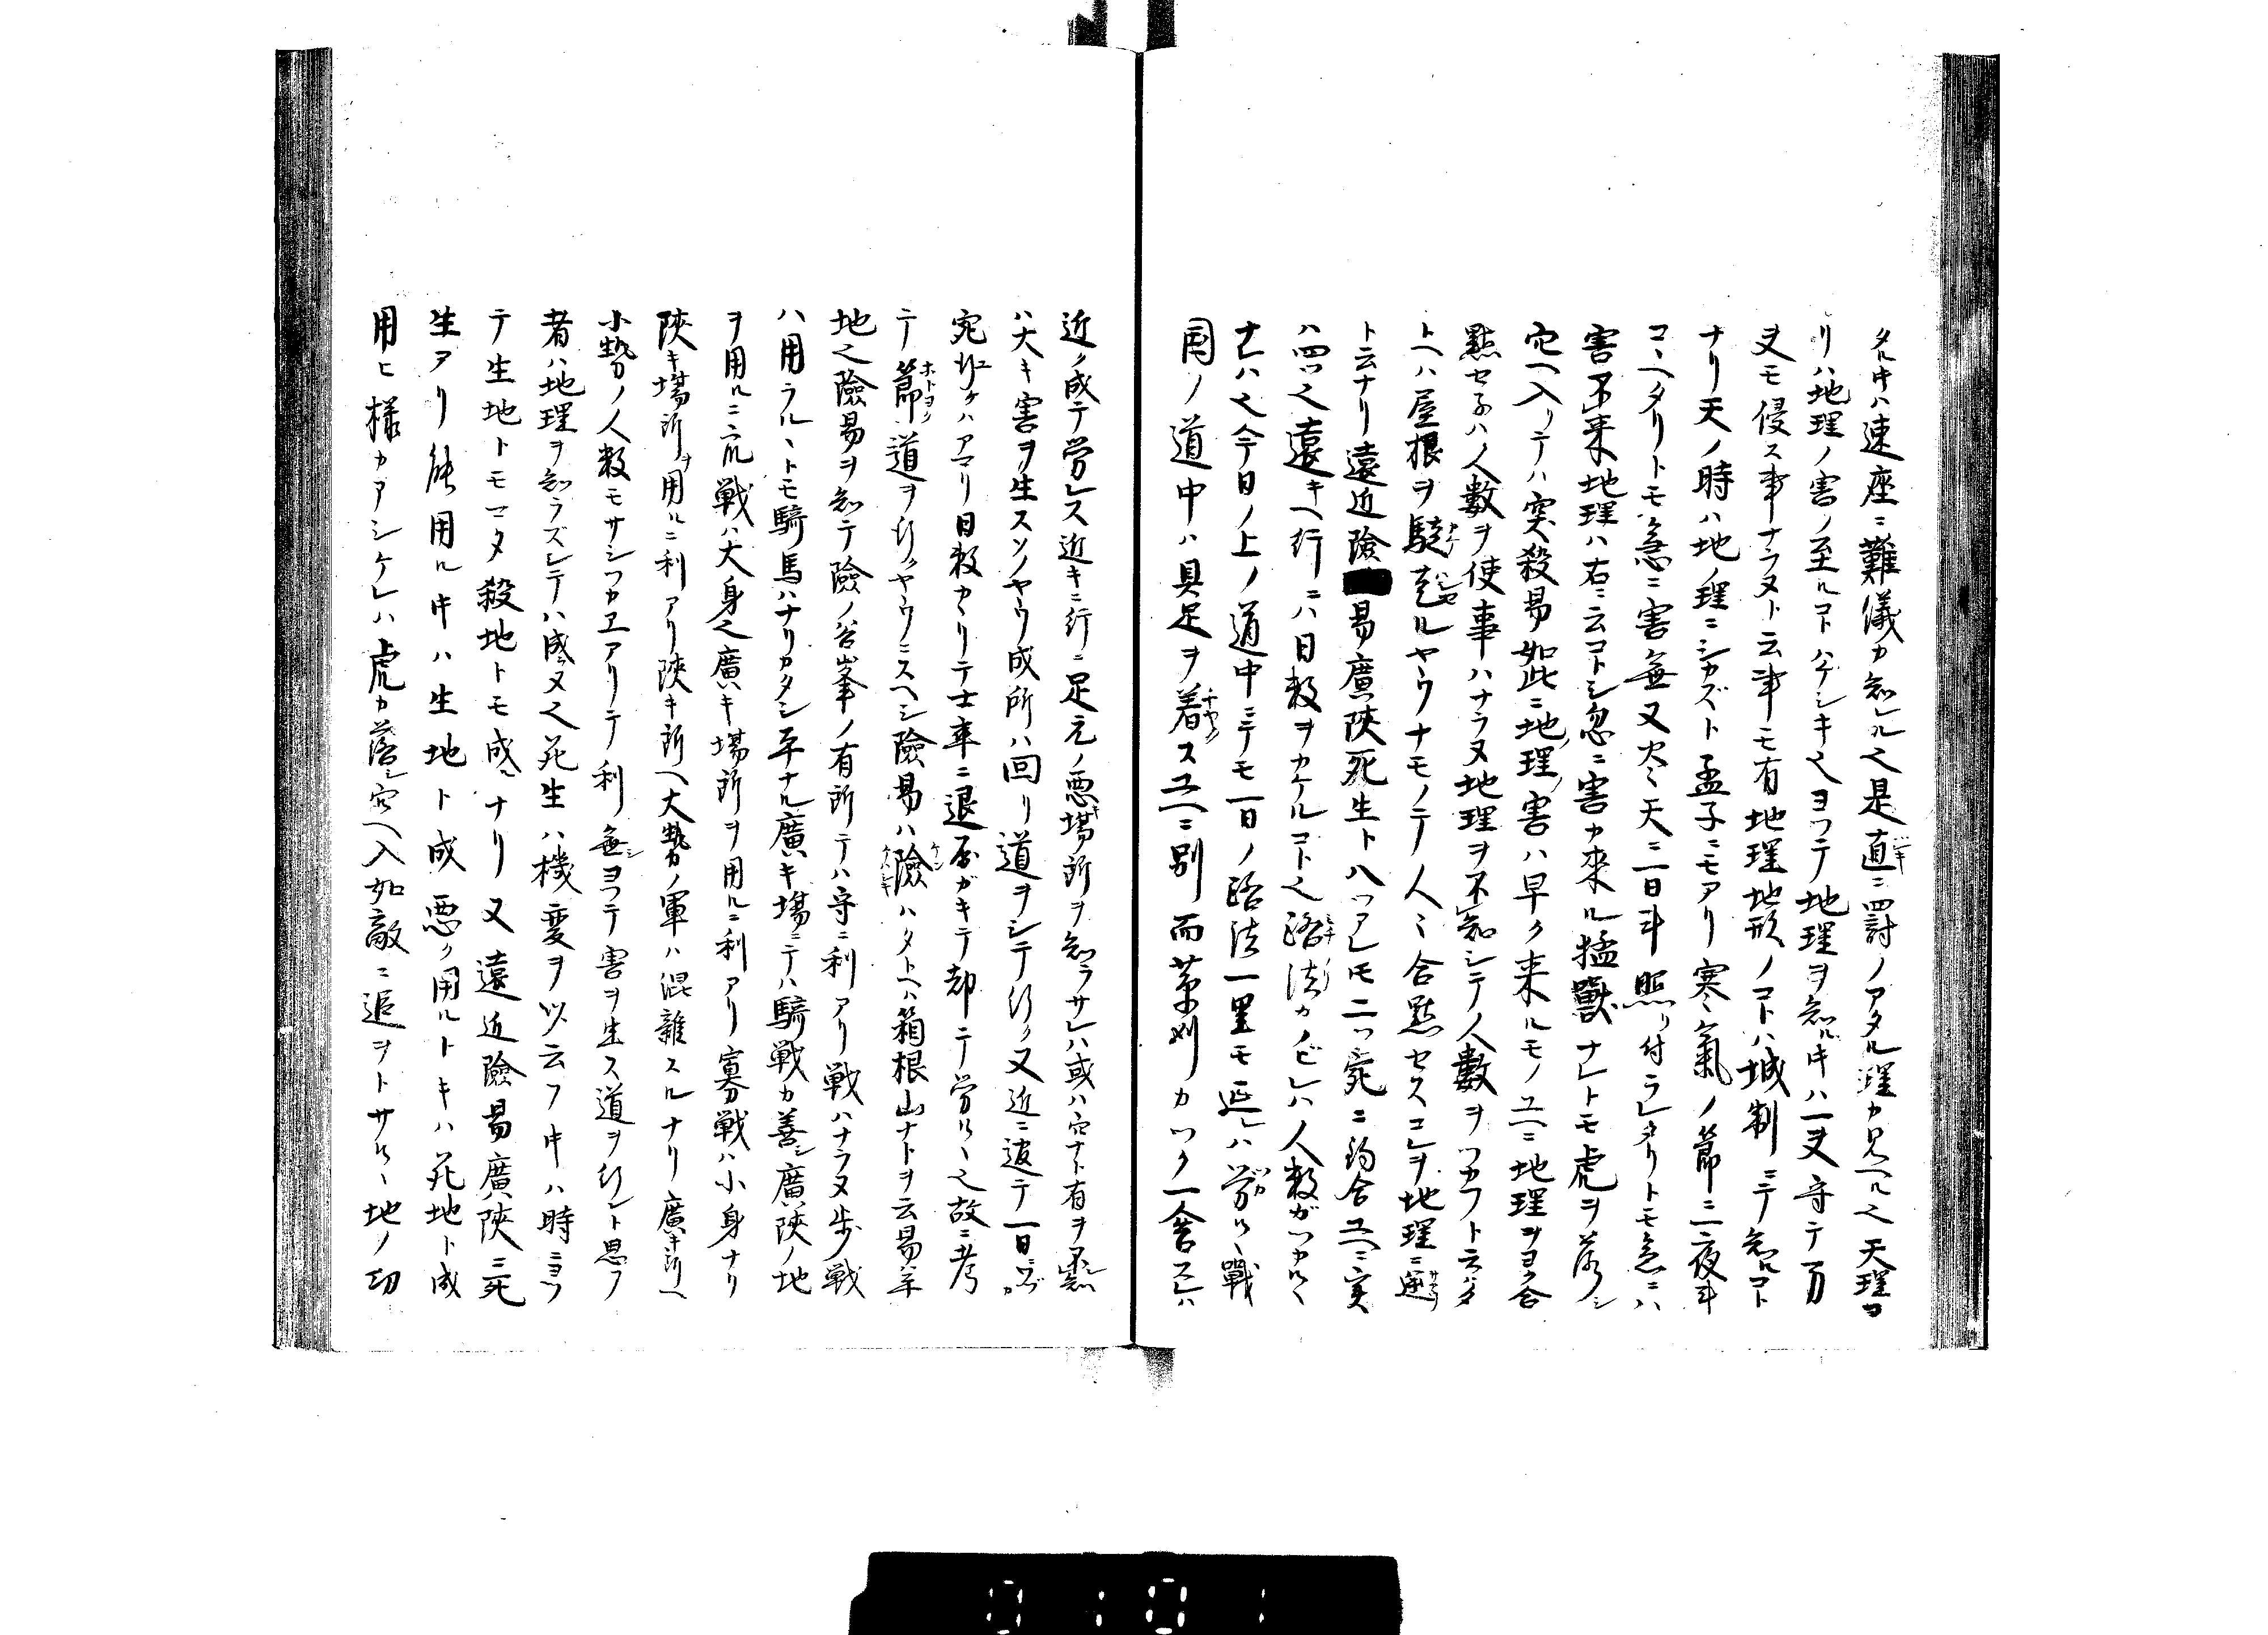 タル片ハ速座ニ難儀カ知ルヽ之是直ニ四討ノアタル理カ見ヘル之天理ヨ
リハ地理ノ害ノ至ルコトハゲシキ之ヨツテ地理ヲ知ル片ハ一叉守テ万
叉モ侵ス事ナラヌト云事モ有地理地形ノコトハ城制ニテ知ルコト
ナリ天ノ時ハ地ノ理ニシカズト孟子ニモアリ寒氣ノ節ニ一夜斗
コヾヘタリトモ急ニ害無又炎天ニ一日斗照リ付ラレタリトモ急ニハ
害不来地理ハ右ニ云コトシ忽ニ害カ来ル猛獣ナレトモ虎ヲ落シ
穴ヘ入リテハ突殺易如此ニ地理ノ害ハ早ク来ルモノユヘニ地理ヲヨク合
點セ子ハ人數ヲ使事ハナラヌ地理ヲ不知シテ人數ヲツカフト云ハタ
トヘハ屋根ヲ騎ルヤウナモノテ人ミ合點セスコレヲ地理ニ逆
ト云ナリ遠近險易廣陜死生ト八ツアレ𪜈二ツ宛ニ約合ユヘニ実
ハ四ツ之遠キヘ行ニハ日数ヲカケルコト之路法カノビレハ人数ガツカルヽ
ナレハ之今日ノ上ノ道中ニテモ一日ノ路法一里モ延レハ労ルヽ戰
国ノ道中ハ具足ヲ着スユヘニ別而草刈カツク一舎スレハ
近ノ成テ労レス近キニ行ニ足元ノ悪場所ヲ知ラサレハ或ハ穴ナト有ヲ不知
ハ大キ害ヲ生スソノヤウ成所ハ回リ道ヲシテ行ク又近ニ返テ一日ニヅカ
宛行ケハアマリ日数カヽリテ士卒ニ退屈ガキテ却テ労ルヽ之故ニ考
テ節道ヲ行クヤウニスヘシ險易ハ險ハタトヘハ箱根山ナトヲ云易平
地之險易ヲ知テ險ノ谷峯ノ有所テハ守ニ利アリ戦ハナラヌ歩戦
ハ用ラルヽトモ騎馬ハナリカタシ平ナル廣キ場ニテハ騎戦カ善シ廣陜ノ地
ヲ用ルニ衆戦ハ大身之廣キ場所ヲ用ルニ利アリ寡戦ハ小身ナリ
陜キ場所ヲ用ルニ利アリ陜キ所ヘ大勢ノ軍ハ混雜スルナリ廣キ所ヘ
小勢ノ人数モサシツカヱアリテ利無シヨツテ害ヲ生ス道ヲ行ント思フ
者ハ地理ヲ知ラズシテハ成ヌ之死生ハ機変ヲ以云フ片ハ時ニヨツ
テ生地トモマタ殺地トモ成ルナリ又遠近險易廣陜ニ死
生アリ能用ル片ハ生地ト成悪ク用ルトキハ死地ト成
用ヒ様カアシケレハ虎カ落シ穴ヘ入如敵ニ追ヲトサルヽ地ノ切